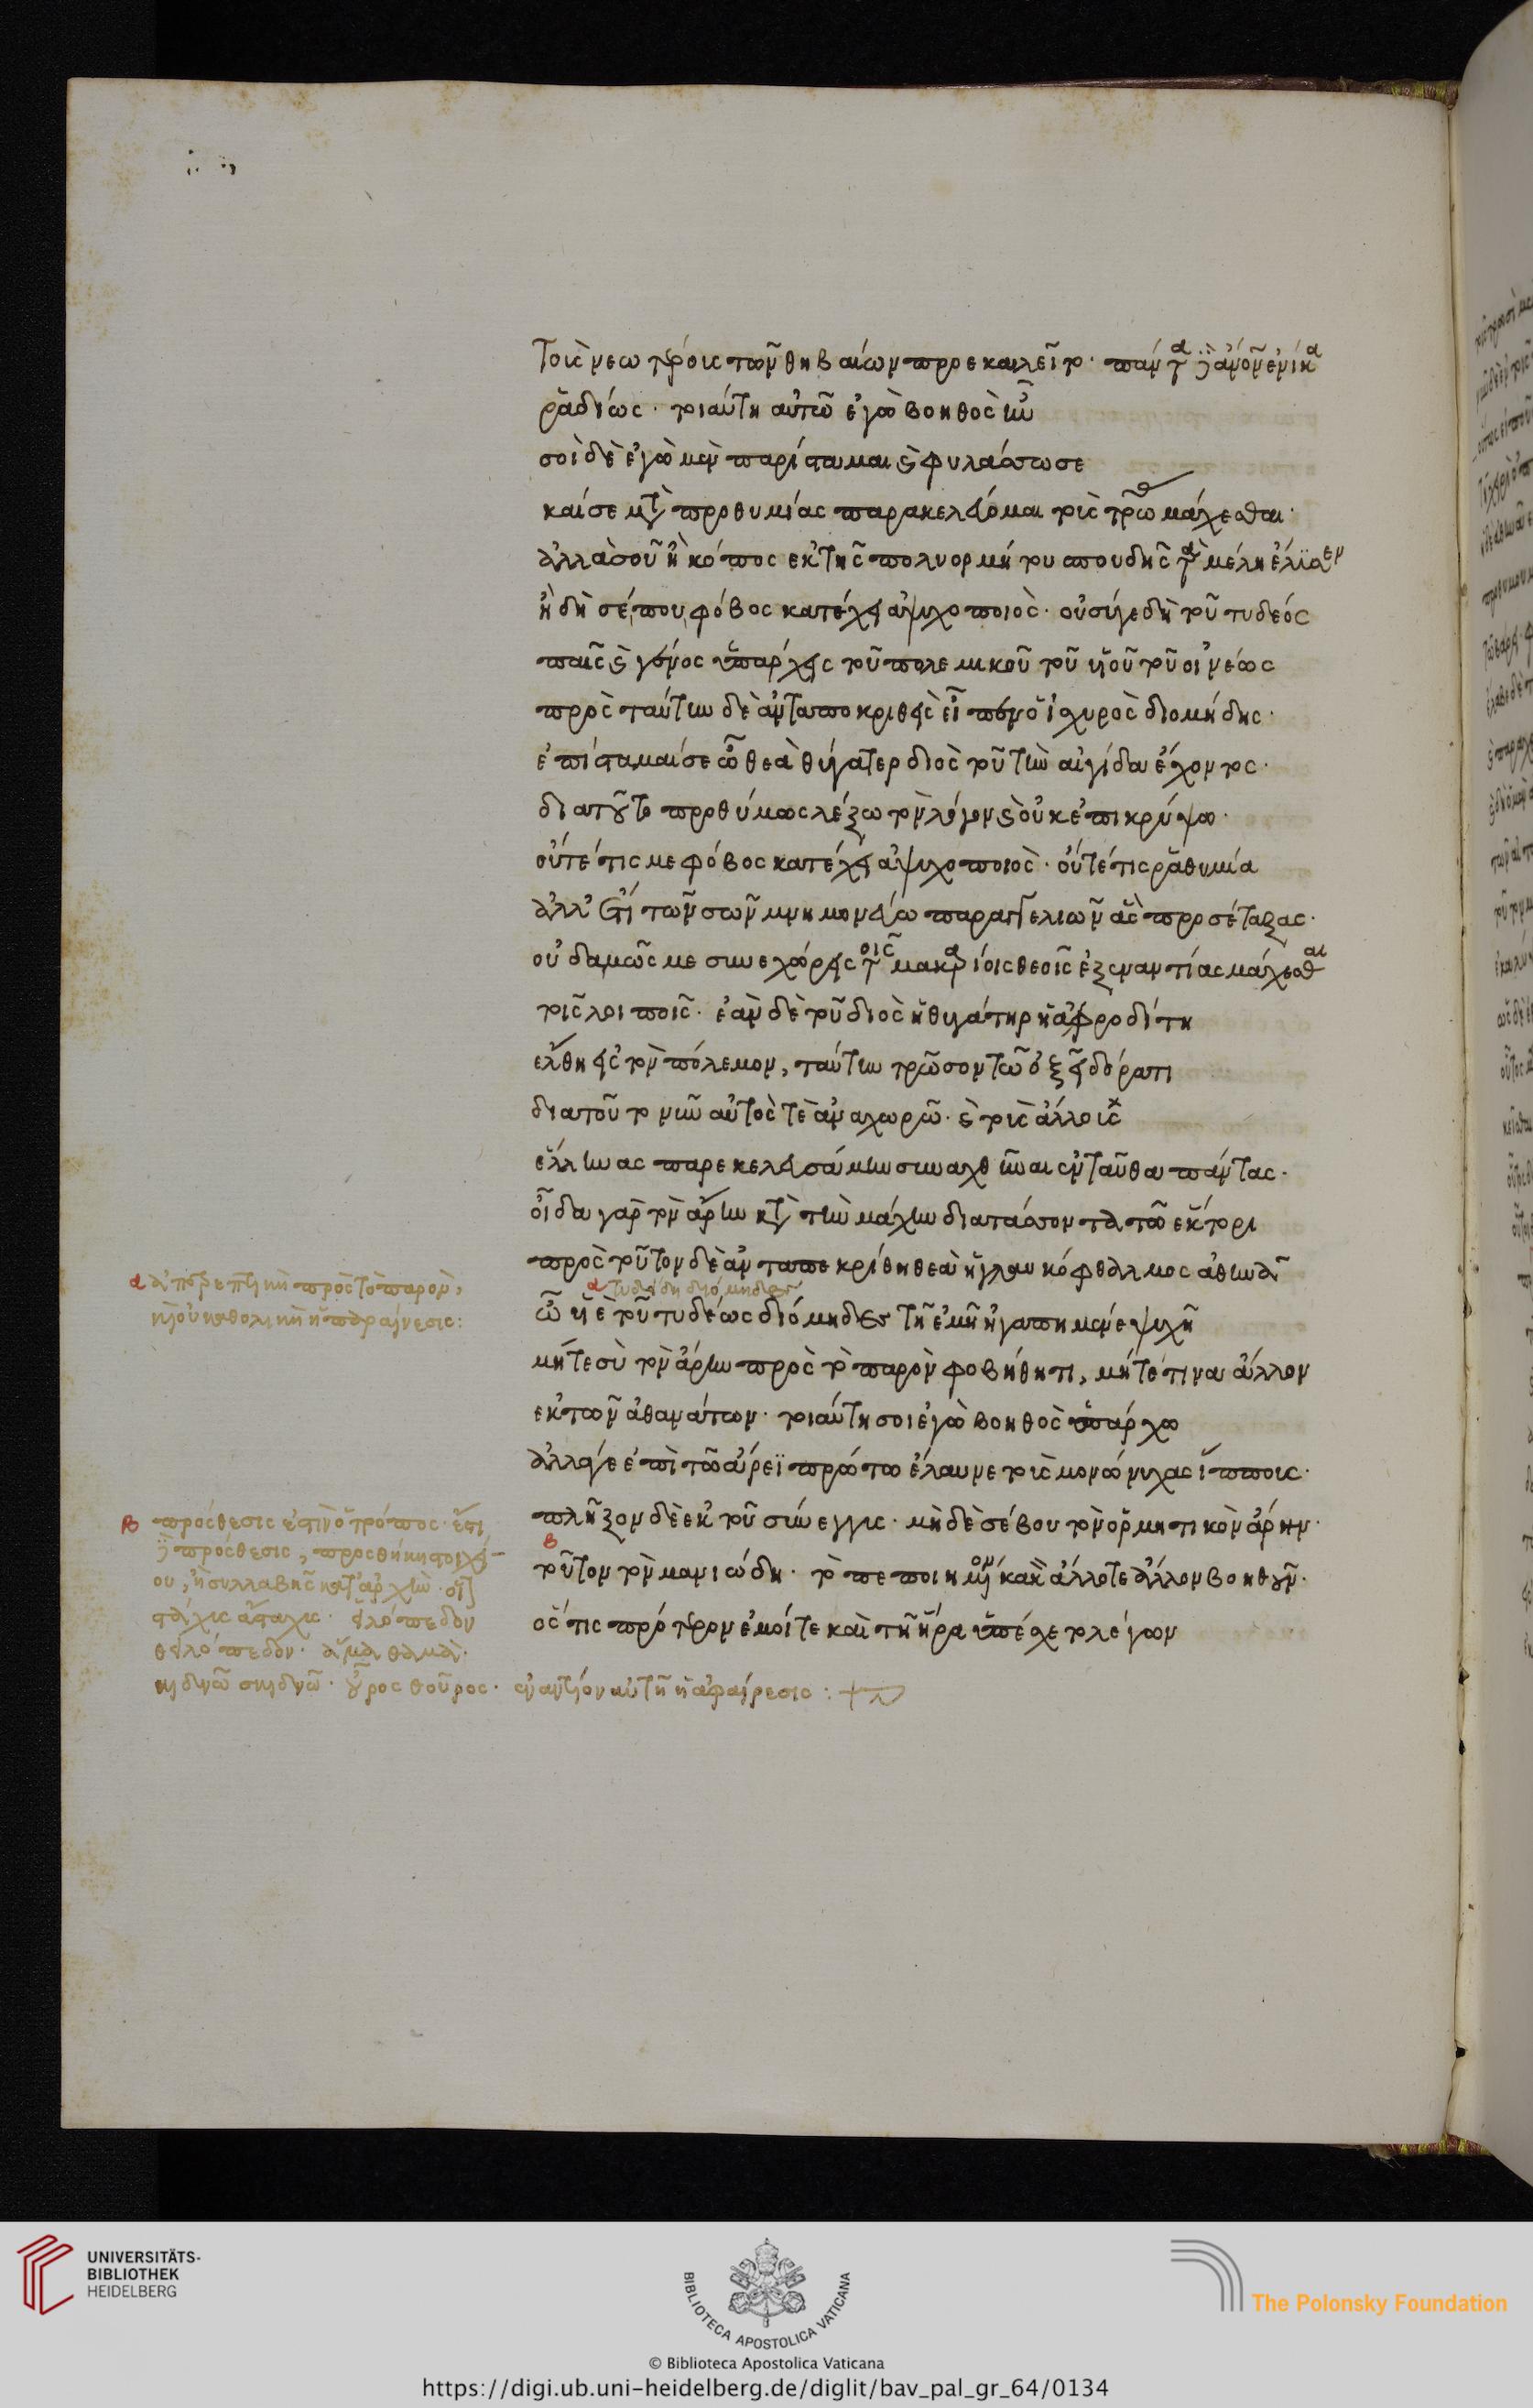 τοὺς νεωτέρους τῶν θηβαίων προεκαλεῖτο· πάντα δὲ ἀγῶνα ἐνίκα
ῥᾳδίως· τοιαύτη αὐτῶ ἐγὼ βοηθὸς ἦν
σοὶ δὲ ἐγὼ μὲν παρίσταμαι καὶ φυλάσσω σε
καί σε μετὰ προθυμίας παρακελεύομαι τοῖς τρωσὶ μάχεσθαι·
ἀλλὰ σοῦ ἢ κόπος ἐκ τῆς πολυορμήτου σπουδῆς τὰ μέλη
ἢ δὴ σέ που φόβος κατέχει ἀψυχοποιὸς· οὐ σύγε δὴ τοῦ τυδέος
παῖς καὶ γόνος ὑπάρχεις τοῦ πολεμικοῦ τοῦ υἱοῦ τοῦ οἰνέως
πρὸς ταύτην δὲ ἀνταποκριθεὶς εἶπεν ὁ ἰσχυρὸς διομήδης·
ἐπίσταμαί σε ὦ θεὰ θύγατερ διὸς τοῦ τὴν αἰγίδα ἔχοντος·
διατοῦτο προθύμως λέξω τὸν λόγον καὶ οὐκ ἐπικρύψω·
οὔτέ τίς με φόβος κατέχει ἀψυχοποιὸς· οὔτέ τις ῥαθυμία
ἀλλ' ἔτι τῶν σῶν μνημονεύω παραγγελιῶν ἃς προσέταξας·
οὐδαμῶς με συνεχώρεις τοῖς μακαρίοις θεοῖς ἐξεναντίας μάχεσθαι
τοῖς λοιποῖς· ἐὰν δὲ τοῦ διὸς ἡ θυγάτηρ ἡ ἀφροδίτη
ἔλθη εἰς τὸν πόλεμον, ταύτην τρῶσον τῶ ὀξεῖ δόρατι
διατοῦτο νῦν αὐτός τε ἀναχωρῶ· καὶ τοὺς ἄλλους
ἕλληνας παρεκελευσάμην συναχθῆναι ἐνταῦθα πάντας·
οἶδα γὰρ τὸν ἄρην κατὰ τὴν μάχην διατάσσοντα τῶ ἕκτορι
πρὸς τοῦτον δὲ ἀνταπεκρίθη θεὰ ἡ γλαυκόφθαλμος ἀθηνᾶ
α τυδείδη διόμηδες
ὦ υἱὲ τοῦ τυδέως διόμηδες τῆ ἐμῆ ἠγαπημένε ψυχῆ
μήτε σὺ τὸν ἄρην πρὸς τὸ παρὸν φοβήθητι, μήτέ τινα ἄλλον
ἐκ τῶν ἀθανάτων· τοιαύτη σοι ἐγὼ βοηθὸς ὑπάρχω
ἀλλάγε ἐπὶ τῶ ἄρεϊ πρώτω ἔλαυνε τοὺς μονώνυχας ἵππους·
πλῆξον δὲ ἐκ τοῦ σύνεγγυς· μὴ δὲ σέβου τὸν ὁρμητικὸν ἄρην·
β
τοῦτον τὸν μανιώδη· τὸ πεποιημένον κακὸν ἄλλοτε ἄλλον βοηθοῦν·
ὅς τις πρότερον ἐμοί τε καὶ τῆ ἥρα ὑπέσχετο λέγων
α ἀποτρεπτικὴ πρὸς τὸ παρὸν,
καὶ οὐ καθολικὴ ἡ παραίνεσις:
β πρόσθεσις ἐστὶν ὁ τρόπος· ἔστι
δὲ πρόσθεσις, προσθήκη στοιχεί-
ου, ἢ συλλαβῆς κατ' ἀρχὴν· οἷον
στάχυς ἄσταχυς· εἱλόπεδον
θειλόπεδον· ἅμα θαμὰ·
κιδνῶ σκιδνῶ· οὖρος θοῦρος· ἐναντίον αὐτῆ ἡ ἀφαίρεσις:
UNIVERSITÄTS-
BIBLIOTHEK
HEIDELBERG
BIBLIOTECA APOSTOLICA VATICANA
The Polonsky Foundation
© Biblioteca Apostolica Vaticana
https://digi.ub.uni-heidelberg.de/diglit/bav_pal_gr_64/0134